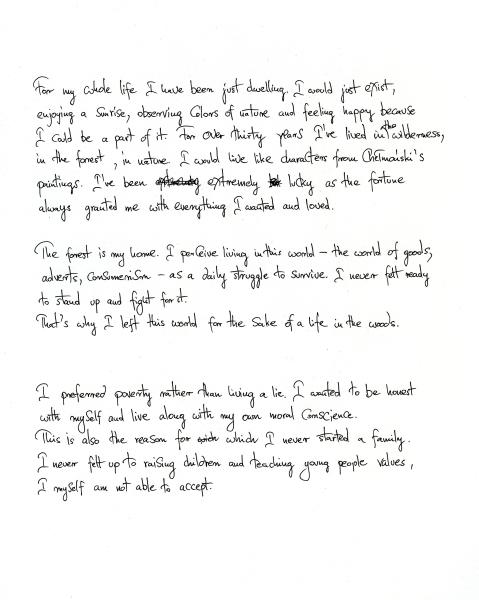 For my whole life I have been just dwelling. I would just exist,
enjoying a sunrise, observing colors of nature and feeling happy because
I could be a part of it. For over thirty years I've lived in the wilderness,
in the forest, in nature. I would live like characters from Chełmoński's
paintings. I've been extremely lucky as the fortune
always granted me with everything I wanted and loved.
The forest is my home. I perceive living in this world – the world of goods,
adverts, consumenism – as a daily struggle to survive. I never felt ready
to stand up and fight for it.
That's why I left this world for the sake of a life in the woods.
I preferred poverty rather than living a lie. I wanted to be honest
with myself and live along with my own moral conscience.
This is also the reason for which I never started a family.
I never felt up to raising children and teaching young people values,
I myself am not able to accept.